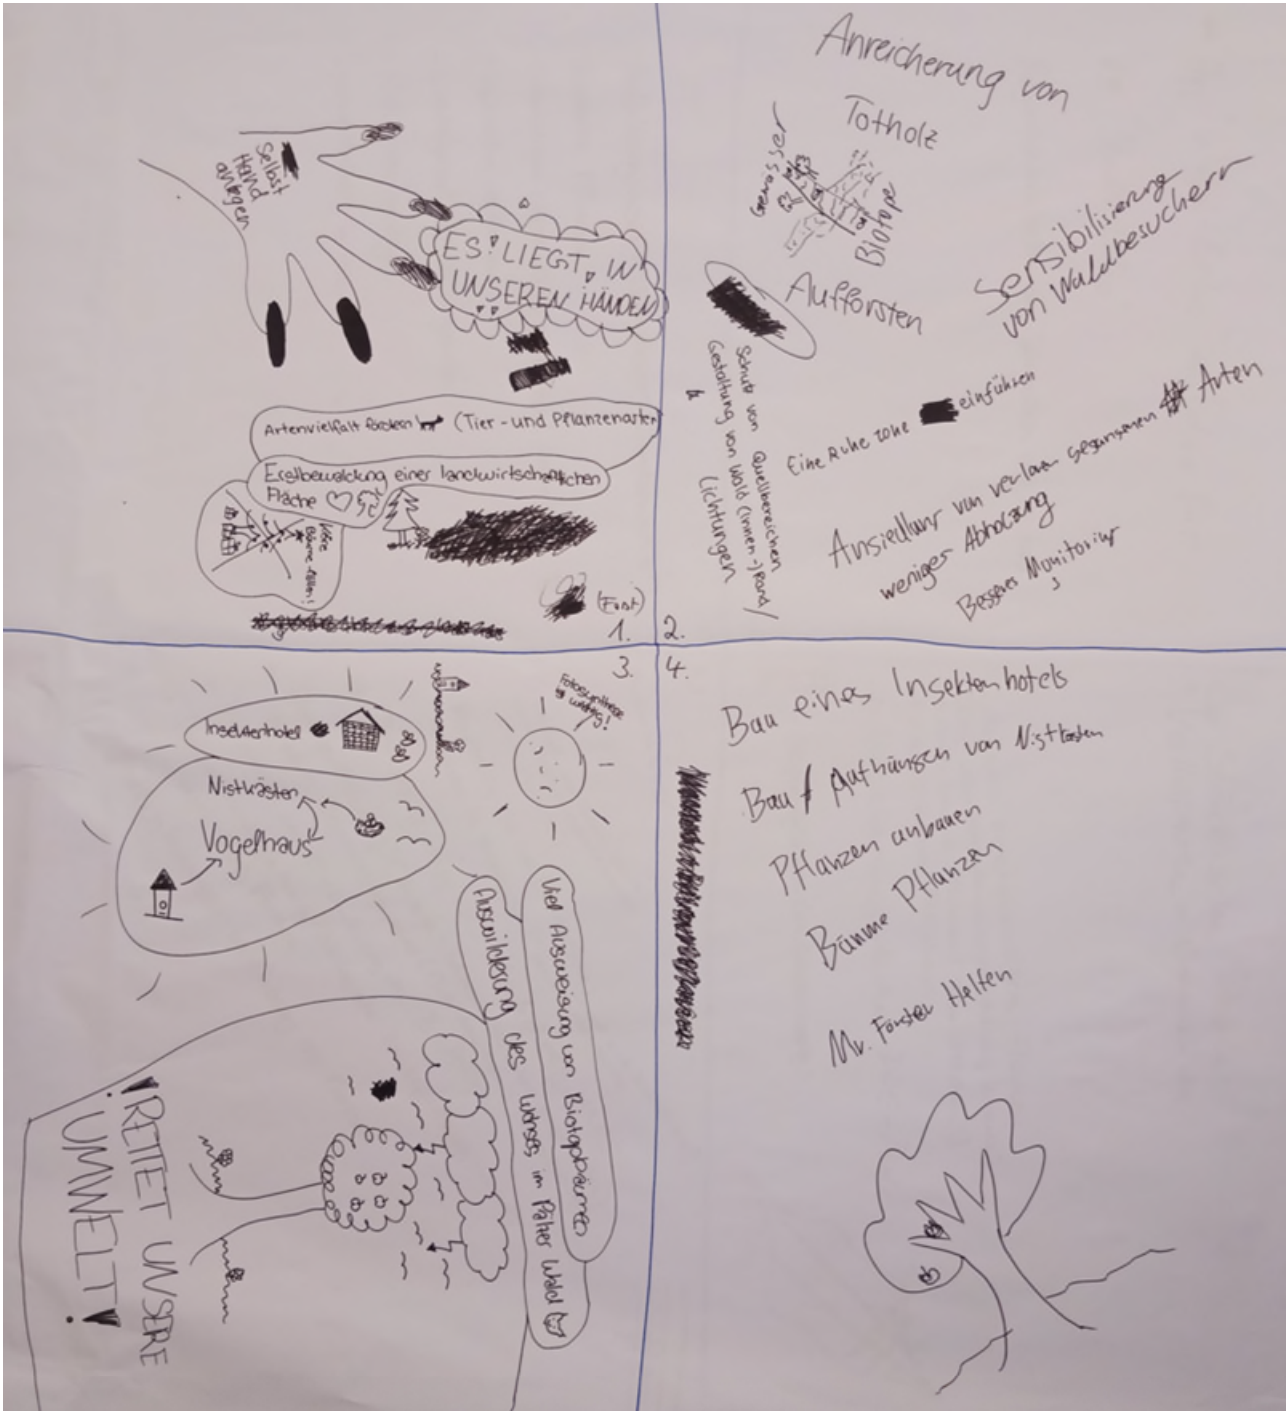 Selbst
Hand
anlegen
ES LIEGT IN
UNSEREN HÄNDEN
Artenvielfalt fördern (Tier- und Pflanzenarten
Erstbewaldung einer landwirtschaftlichen
Fläche
Bäume fällen!
(Forst)
1.
Anreicherung von
Totholz
Gewässer
Biotope
Aufforsten
Sensibilisierung
von Waldbesuchern
Schutz von Quellbereichen
Gestaltung von Wald (Innen-)Rand/
Lichtungen
Eine Ruhe zone einführen
Ansiedlung von verloren gegangenen Arten
weniger Abholzung
Besseres Monitoring
2.
3.
Fotosynthese
wichtig!
Insektenhotel
Nistkästen
Vogelhaus
Viel Ausweisung von Biotopbäumen
Auswilderung des im Pfälzer Wald
! RETTET UNSERE
UMWELT !
4.
Bau eines Insektenhotels
Bau / Aufhängen von Nistkasten
Pflanzen anbauen
Bäume Pflanzen
Mr. Förster Helfen